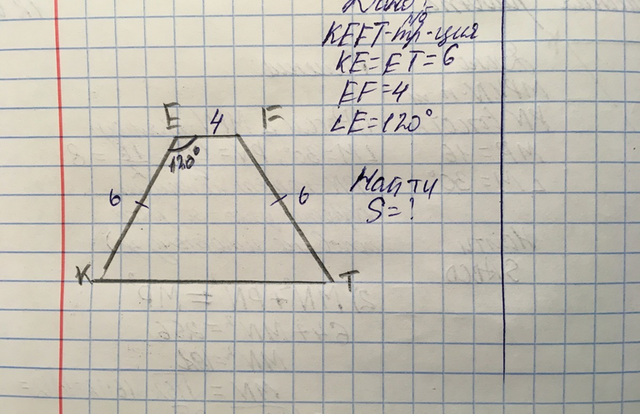 Дано:
р/б
KEFT-тр-ция
KE=ET=6
EF=4
∠E=120°
E 4 F
120°
6 6
Найти
S=?
K T